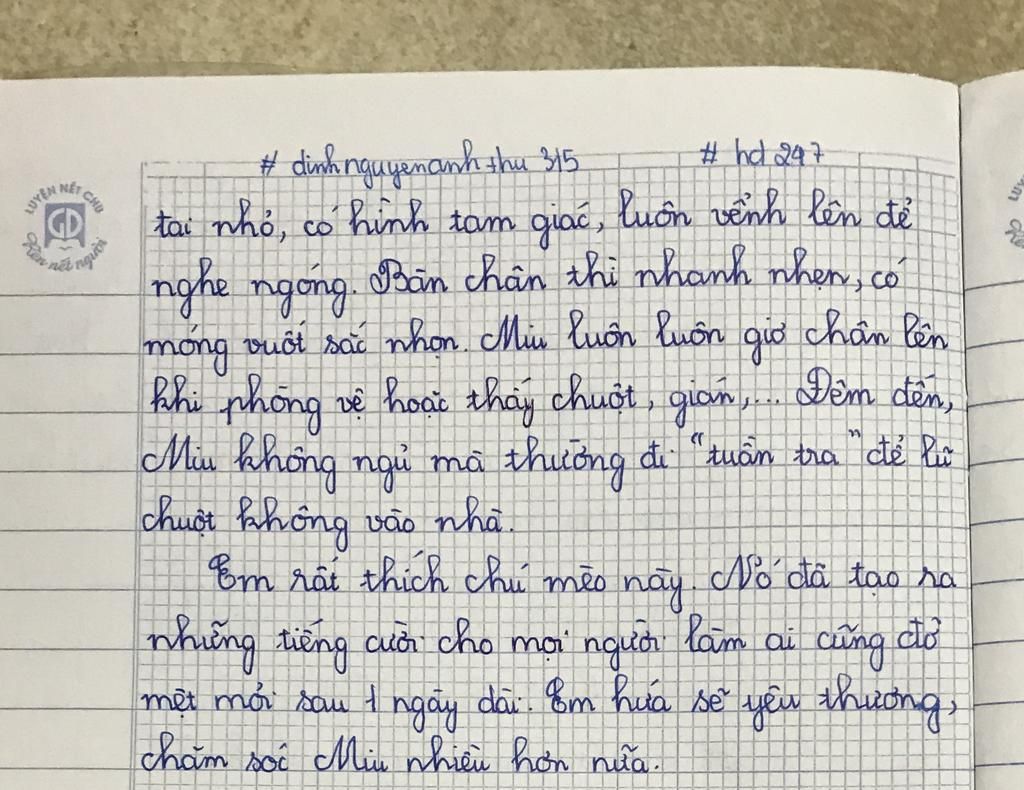 # dinhnguyenanhthu315 # hd247
LUYỆN NẾT CHỮ
GD
Rèn nết người
tai nhỏ, có hình tam giác, luôn vểnh lên để
nghe ngóng. Bàn chân thì nhanh nhẹn, có
móng vuốt sắc nhọn. Miu luôn luôn giơ chân lên
khi phòng vệ hoặc thấy chuột, gián,... Đêm đến,
Miu không ngủ mà thường đi "tuần tra" để lũ
chuột không vào nhà.
Em rất thích chú mèo này. Nó đã tạo ra
những tiếng cười cho mọi người làm ai cũng đỡ
mệt mỏi sau 1 ngày dài. Em hứa sẽ yêu thương,
chăm sóc Miu nhiều hơn nữa.